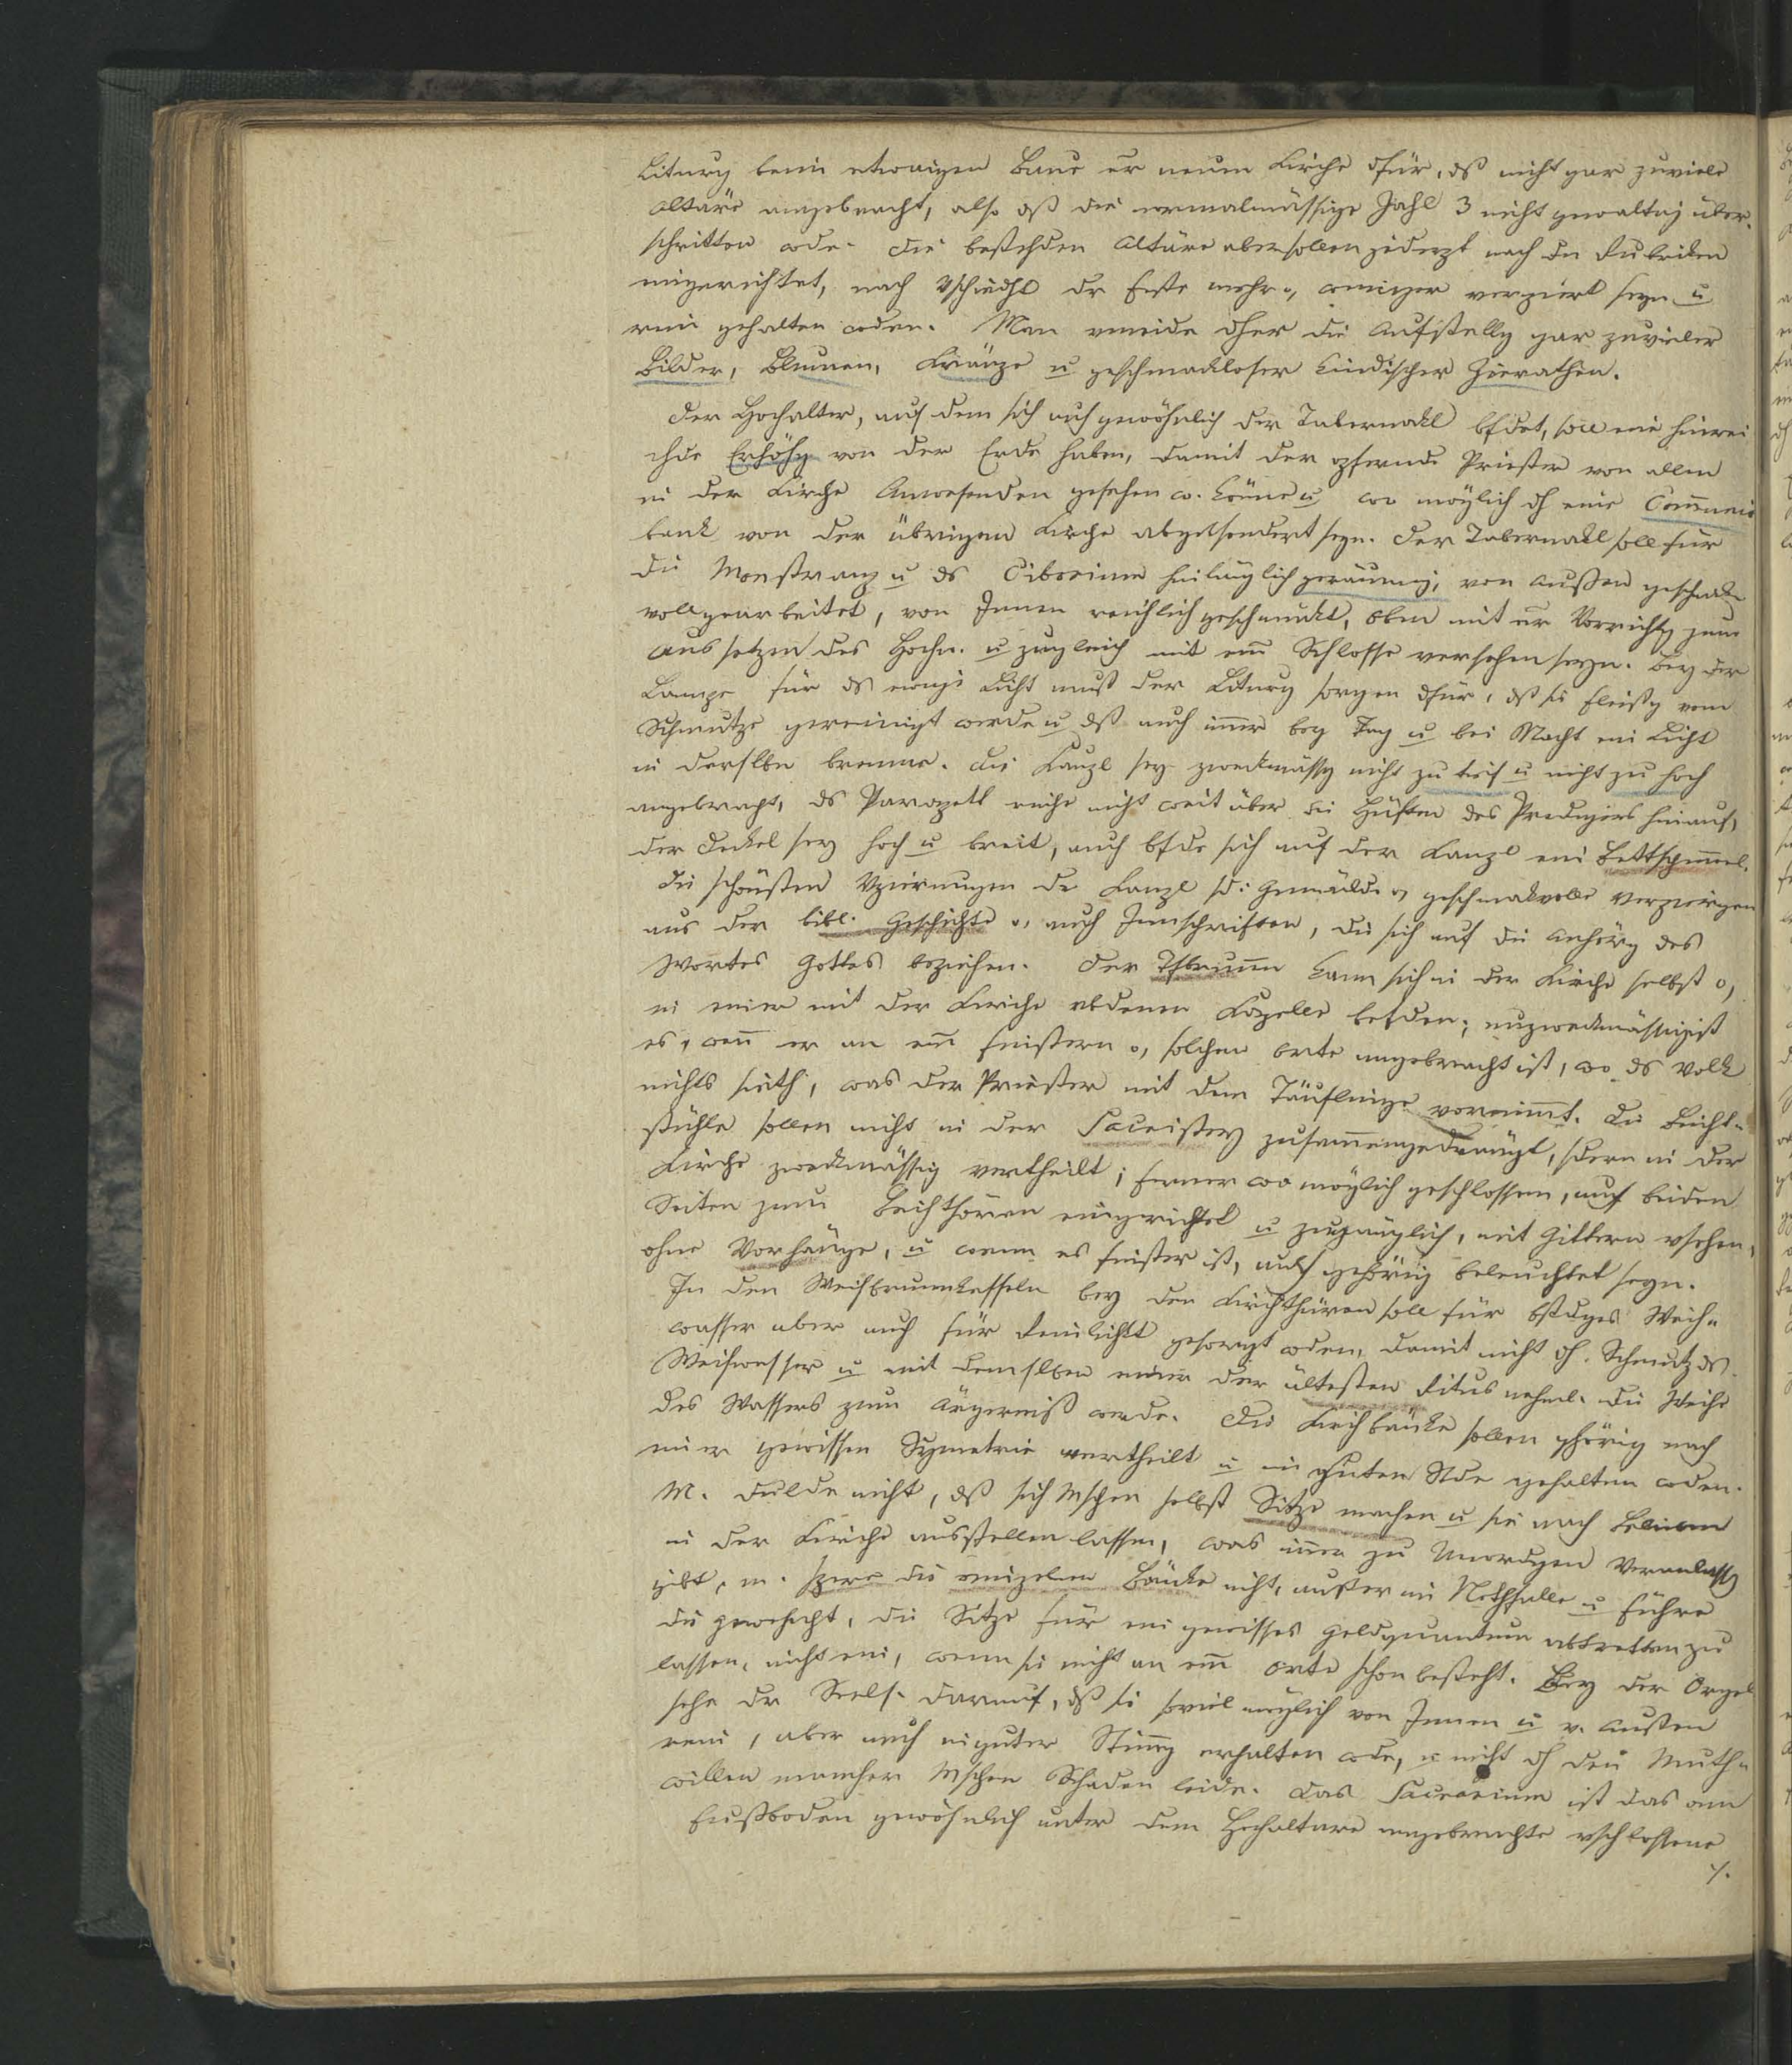 Liturg beim etwaigen Baue er neuen Kirche dfür, dß nicht gar zuviele
Altäre angebracht, also dß die normalmässige Zahl 3 nicht gewaltig über-
schritten wde. Die bestehden Altäre aber sollen jederzt nach den Rubriken
eingerichtet, nach Vschiedht dr Feste mehr o, weniger verziert seyn u
rein gehalten wden. Man vmeide dher die Aufstellg gar zuvieler
Bilder, Blumen, Kränze u geschmackloser kindischer Zierathen.
Der Hochalter, auf dem sich auch gewöhnlich der Tabernakl bfdet, soll eine hinrei
chde Erhöhg von der Erde haben, damit der opfernde Priester von allen
in der Kirche Anwesenden gesehen w. könne u wo möglich dh eine Communio
bank von der übrigen Kirche abgesondert seyn. Der Tabernakl soll für
die Monstranz u ds Ciborium hinlänglich geräumig, von Außen geschmak
voll gearbeitet, von Innen reichlich geschmückt, oben mit er Vorrichtg zum
Aussetzen des Hochw. u zugleich mit em Schlosse versehen seyn. Bey der
Lampe für ds ewige Licht muß der Liturg sorgen dfür, dß sie fleißig vom
Schmutze gereinigt werde u dß auch imer bey Tag u bei Nacht ein Licht
in derslbn brenne. Die Kanzl sey zweckmässig nicht zu tief u nicht zu hoch
angebracht, ds Parapett reiche nicht weit über die Hüften des Predigers hinauf,
der Deckel sey hoch u breit, auch bfde sich auf der Kanzl ein Bettschemmel.
Die schönsten Vzierungen der Kanzl sd: Gemälde o, geschmakvolle Verzierigen
aus der bibl. Geschichte o, auch Innschriften, die sich auf die Anhörg des
Wortes Gottes beziehen. Der Tfbrunn kann sich in der Kirche selbst o,
in einer mit der Kirche vbdenen Kapelle befden; unzweckmässig ist
es, wenn er an em finstern o, solchen Orte angebracht ist, wo ds Volk
nichts sieht, was der Priester mit dem Täuflinge vornimmt. Die Beicht-
stühle sollen nicht in der Sacristey zusammengedrängt, sdern in der
Kirche zweckmässig vertheilt, ferner wo möglich geschlossen, auf beiden
Seiten zum Beichthören eingerichtet u zugänglich, mit Gittern vsehen,
ohne Vorhänge, u wenn es finster ist, auch gehörig beleuchtet seyn.
In den Weihbrunnkesseln bey den Kirchthüren soll für bstdges Weih-
wasser aber auch für Reinlichkt gesorgt wden, damit nicht dh. Schmutz ds
Weihwasser u mit demslben einer der ältesten Ritus nehml. die Weihe
des Wassers zum Ärgerniß werde. Die Kirchbänke sollen ghörig nach
einer gewissen Symetrie vertheilt u in gutem Stde gehalten wden.
M. dulde nicht, dß sich Mschen selbst Sitze machen u sie nach Belieben
in der Kirche aufstellen lassen, was imer zu Unordgen Veranlassg
gibt, m. sperre die einzelnen Bänke nicht, außer im Nothfalle u führe
die gewohnht, die Sitze für ein gewisses Geldquantum abtretten zu
lassen, nicht ein, wenn sie nicht an em Orte schon besteht. Bey der Orgel
sehe der Seels. darauf, dß sie soviel möglich von Innen u v. Außen
rein, aber auch in guter Stimg erhalten wde, u nicht dh den Muth-
willen mancher Mschen Schaden leide. Das Sacrarium ist das am
Fußboden gewöhnlich unter dem Hochaltare angebrachte vschlossene
./.